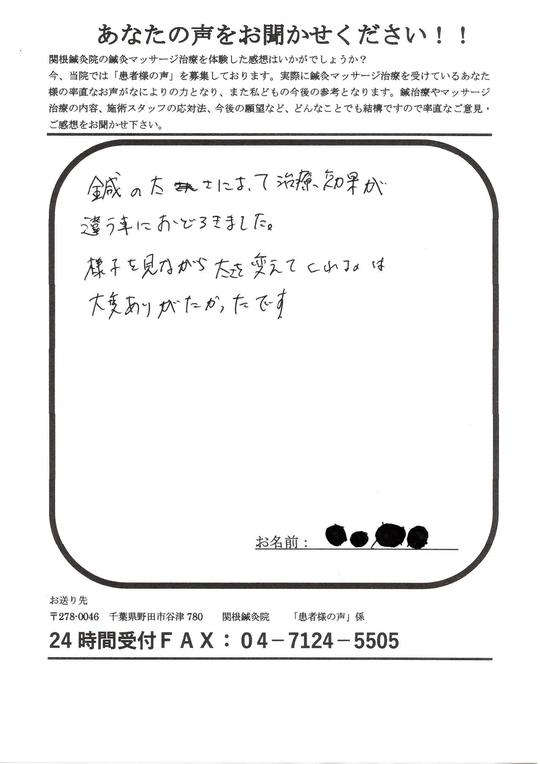 あなたの声をお聞かせください！！
関根鍼灸院の鍼灸マッサージ治療を体験した感想はいかがでしょうか？
今、当院では「患者様の声」を募集しております。実際に鍼灸マッサージ治療を受けているあなた
様の率直なお声がなによりの力となり、また私どもの今後の参考となります。鍼治療やマッサージ
治療の内容、施術スタッフの応対法、今後の願望など、どんなことでも結構ですので率直なご意見・
ご感想をお聞かせ下さい。
鍼の太さによって治療、効果が
違う事におどろきました。
様子を見ながら太さを変えてくれるのは
大変ありがたかったです
お名前：
お送り先
〒278-0046 千葉県野田市谷津 780 関根鍼灸院 「患者様の声」係
24 時間受付ＦＡＸ：０４－7124－5505